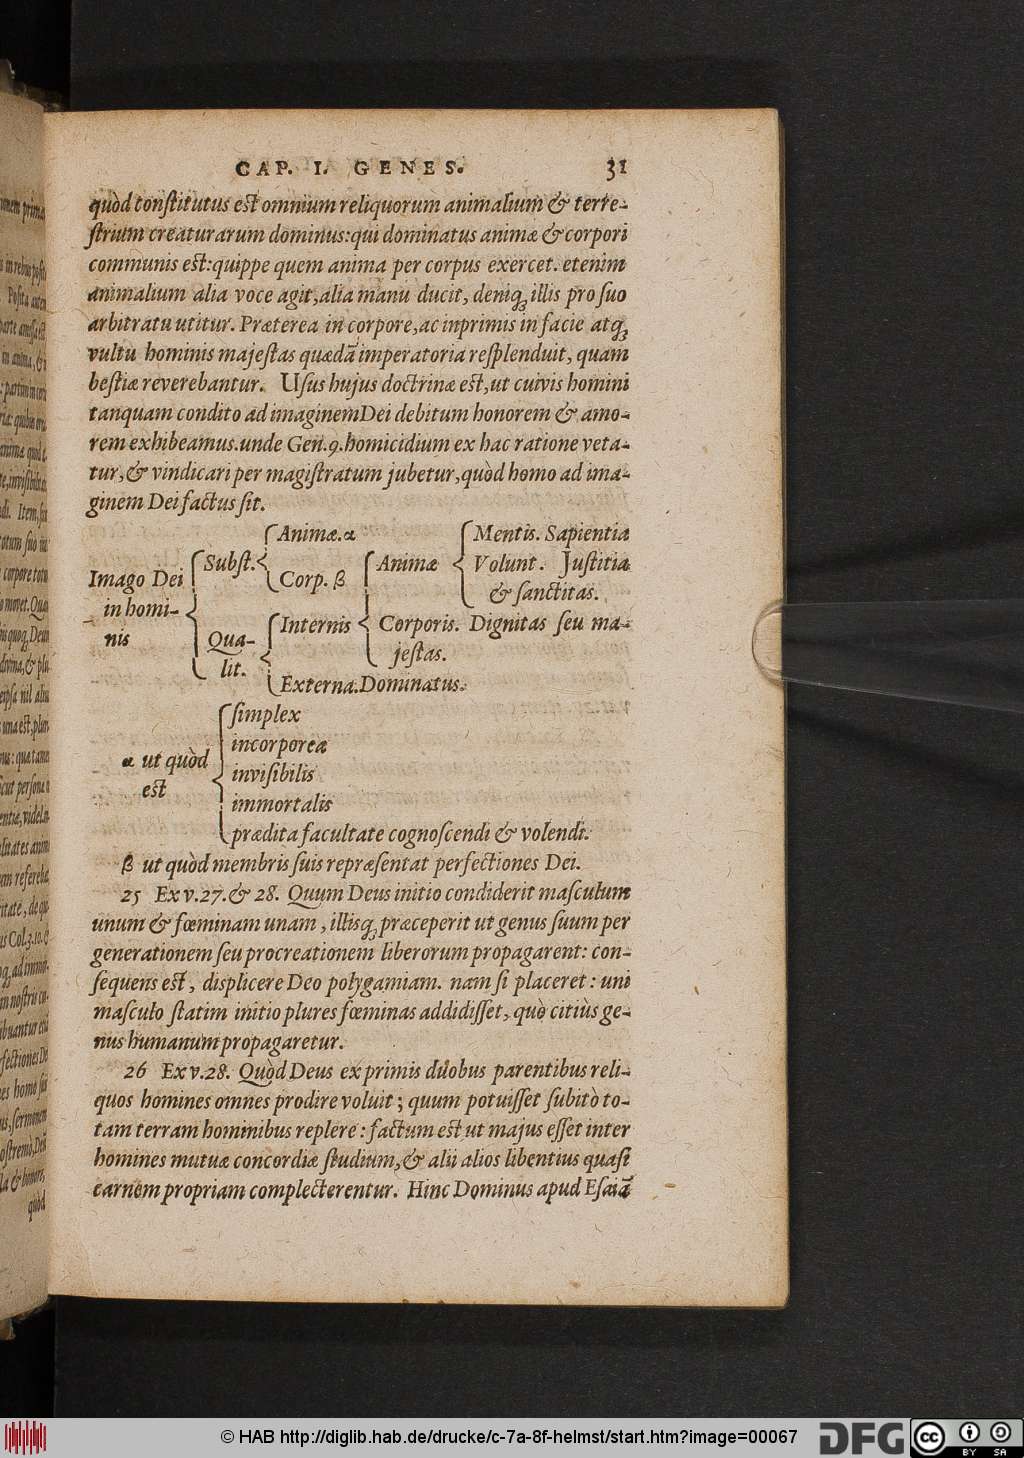 CAP. I. GENES. 31
quòd constitutus est omnium reliquorum animalium & terre-
strium creaturarum dominus: qui dominatus animæ & corpori
communis est: quippe quem anima per corpus exercet. etenim
animalium alia voce agit, alia manu ducit, deniq; illis pro suo
arbitratu utitur. Præterea in corpore, ac inprimis in facie atq;
vultu hominis majestas quædā imperatoria resplenduit, quam
bestiæ reverebantur. Usus hujus doctrinæ est, ut cuivis homini
tanquam condito ad imaginem Dei debitum honorem & amo-
rem exhibeamus. unde Gen. 9. homicidium ex hac ratione veta-
tur, & vindicari per magistratum jubetur, quòd homo ad ima-
ginem Dei factus sit.
Imago Dei
in homi-
nis
Subst.
Animæ. α
Corp. β
Qua-
lit.
Internis
Animæ
Mentis. Sapientia
Volunt. Justitia
& sanctitas.
Corporis. Dignitas seu ma-
jestas.
Externa. Dominatus.
α ut quòd
est
simplex
incorporea
invisibilis
immortalis
prædita facultate cognoscendi & volendi.
β ut quòd membris suis repræsentat perfectiones Dei.
25 Ex v. 27. & 28. Quum Deus initio condiderit masculum
unum & fœminam unam, illisq; præceperit ut genus suum per
generationem seu procreationem liberorum propagarent: con-
sequens est, displicere Deo polygamiam. nam si placeret: uni
masculo statim initio plures fœminas addidisset, quò citiùs ge-
nus humanum propagaretur.
26 Ex v. 28. Quòd Deus ex primis duobus parentibus reli-
quos homines omnes prodire voluit; quum potuisset subitò to-
tam terram hominibus replere: factum est ut majus esset inter
homines mutuæ concordiæ studium, & alii alios libentius quasi
carnem propriam complecterentur. Hinc Dominus apud Esaiā
© HAB http://diglib.hab.de/drucke/c-7a-8f-helmst/start.htm?image=00067
DFG
cc BY SA